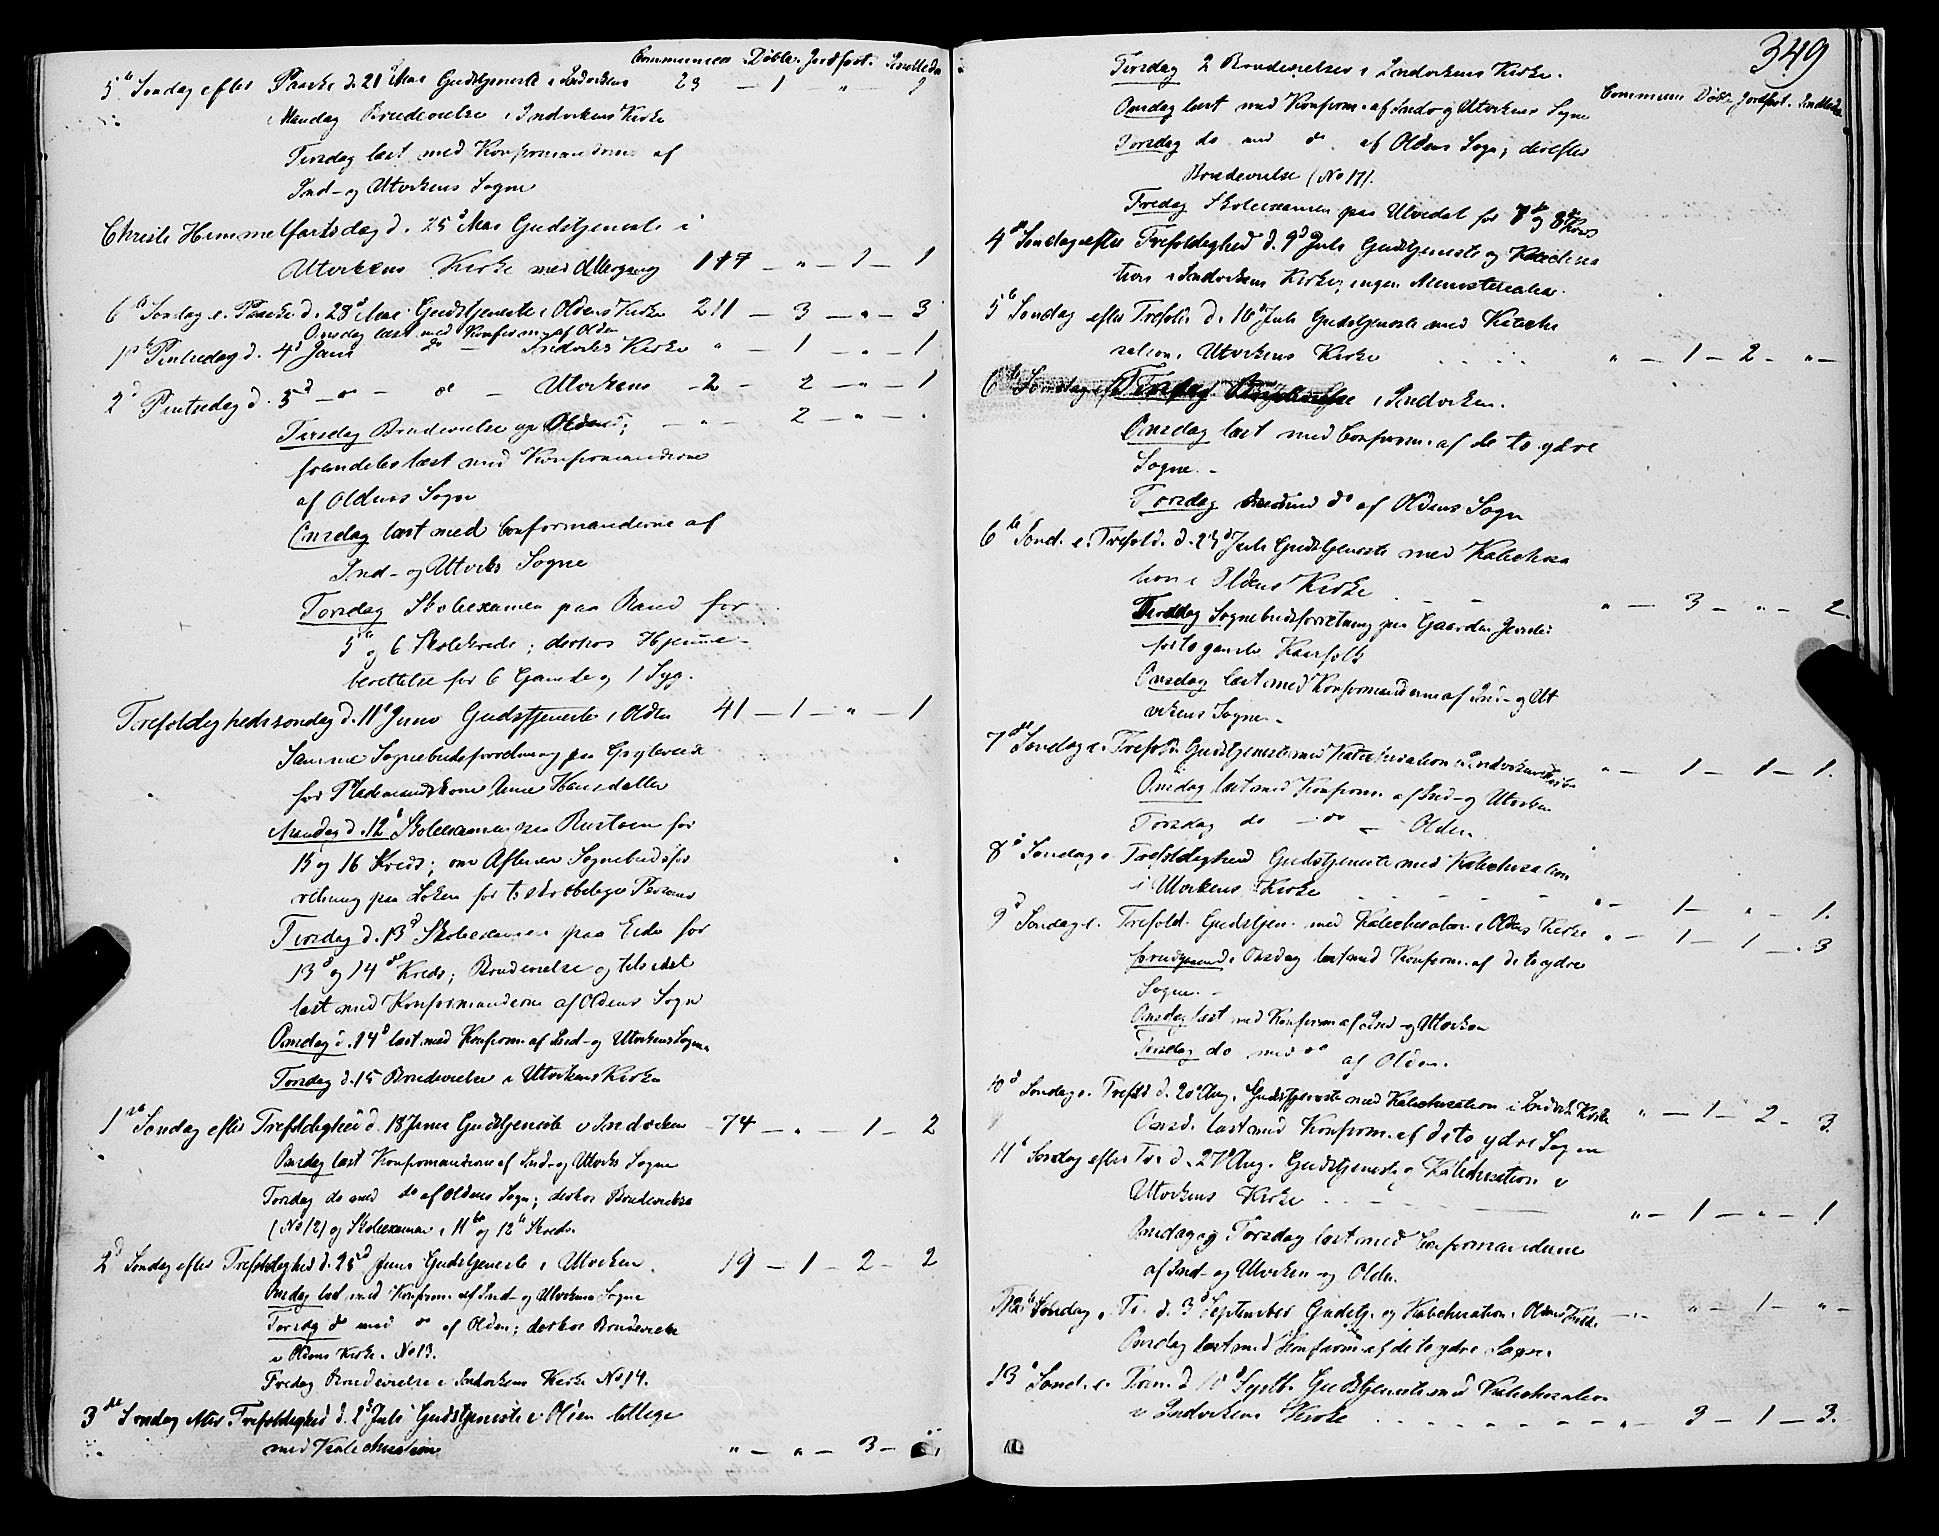 Communica Døbte Jordfæst. Indledte
5te Søndag efter Paaske d. 21de Mai Gudstjeneste i Indvikens 23 — 1 — „ — 2
Mandag Brudevielse i Indvikens Kirke
Tirsdag læst med Konfirmanderne af
Ind- og Utvikens Sogne
Christi Himmelfartsdag d. 25d Mai Gudstjeneste i
Utvikens Kirke med Altergang 117 — „ — 1 — 1
6te Søndag e. Paaske d. 28d Mai Gudstjeneste i Oldens Kirke 211 — 3 — „ — 3
Onsdag læst med Konfirm. af Olden
1ste Pintsedag d. 4d Juni do — Indviks Kirke „ — 1 — „ — 1
2d Pintsedag d. 5d — do — do — Utvikens — 2 — 2 — „ — 1
Tirsdag Brudevielse op Olden; — „ — 2 — „ — .
fremdeles læst med Konfirmanderne
af Oldens Sogn
Onsdag læst med Confirmanderne af
Ind- og Utviks Sogne
Torsdag Skoleexamen paa Rand for
5te og 6 Skolekreds; derhos Hjemme-
berettelse for 6 Gamle og 1 Syg.
Trefoldighedssøndag d. 11d Juni Gudstjeneste i Olden 41 — 1 — „ — 1
Samme Sognebudsforretning paa
for Pladsmandskone Anne Hansdatter
Mandag d. 12d Skoleexamen paa Rustøen for
15 og 16 Kreds; om Aftenen Sognebudsfor
retning paa Loken for to skrøbelige Personer
Tirsdag d. 13d Skoleexamen paa Eide for
13d og 14de Kreds; Brudevielse og tilsidst
læst med Konfirmanderne af Oldens Sogn
Onsdag d. 14d læst med Konfirm. af Ind- og Utvikens Sogne
Torsdag d. 15 Brudevielse i Utvikens Kirke
1ste Søndag efter Trefoldighed d. 18 Juni Gudstjeneste i Indviken — 74 — „ — 1 — 2
Onsdag læst Konfirmanderne af Ind- og Utviks Sogne
Torsdag do med do af Oldens Sogn; derhos Brudevielse
(No 12) og Skoleexamen i 11te og 12te Kreds.
2d Søndag efter Trefoldighed d. 25d Juni Gudstjeneste i Utviken. 19 — 1 — 2 — 2
Onsdag læst med Konfirm. af Ind- og Utvikens Sogne
Torsdag do med do af Olden; derhos Brudevielse
i Oldens Kirke. No 13.
Fredag Brudevielse i Indvikens Kirke No 14.
3die Søndag efter Trefoldighed d. 2d Juli Gudstjeneste i Olden tillige
med Katechisation „ — „ — 3 —
349
Tirsdag 2 Brudevielser i Indvikens Kirke.
Communic Døbte Jordfæst. Indledte
Onsdag læst med Konfirm. af Ind- og Utvikens Sogne
Torsdag do med do af Oldens Sogn; derefter
Brudevielse (No 17).
Fredag Skoleexamen paa Ulvedal for 7de og 8de Kreds
4de Søndag efter Trefoldighed d. 9d Juli Gudstjeneste og Katechisa
tion i Indvikens Kirke; ingen Ministerialia.
5te Søndag efter Trefoldi. d. 16d Juli Gudstjeneste med Katechi
sation i Utvikens Kirke . . . . „ — 1 — 2 — „ —
6te Søndag Tirsdag i Indviken.
Onsdag læst med Confirm. af de to ydre
Sogne. —
Torsdag do af Oldens Sogn
6te Sønd. e. Trefold. d. 23d Juli Gudstjeneste med Katechisa
tion i Oldens Kirke . — — „ — 3 — „ — 2.
Tirsdag Sognebudsforretning paa Gaarden
for to gamle Kaarfolk
Onsdag læst med Konfirmanderne af Ind- og Ut
vikens Sogne. —
7de Søndag e. Trefold. Gudstjeneste med Katechisation i Indvikens Kirke „ — 1 — 1 — 1.
Onsdag læst med Konfirm. af Ind- og Utviken
Torsdag do — do — Olden.
8d Søndag e. Trefoldighed Gudstjeneste med Katechisation
i Utvikens Kirke — — — — „ — 1 — „ — 1.
9d Søndag e. Trefold. Gudstjen. med Katechisation i Oldens Kirke „ — 1 — 1 — 3
Onsdag læst med Konfirm. af de to ydre
Sogne. —
Onsdag læst med Konfirm af Ind- og Utviken
Torsdag do med do af Olden.
10d Søndag e. Trefold d. 20d Aug. Gudstjeneste med Katechisation i Indvik. Kirke „ — 1 — 2 — 3.
Onsd. læst med Konfirm. af de to ydre Sogne
11te Søndag efter Tr. d. 27d Aug. Gudstjeneste og Katechisation i
Utvikens Kirke . — — — „ — 1 — „ — 1
Onsdag og Torsdag læst med Confirmanderne
af Ind- og Utviken og Olden.
12te Søndag e. Tr. d. 3d September Gudstj. og Katechisation i Oldens Kirke — „ — „ — 1 — „ —
Onsdag læst med Konfirm. af de to ydre Sogne.
13d Sønd. e. Tr. d. 10d Septb. Gudstjeneste med Katechisation
i Indvikens Kirke . . . . — — — „ — 3 — 1 — 3.